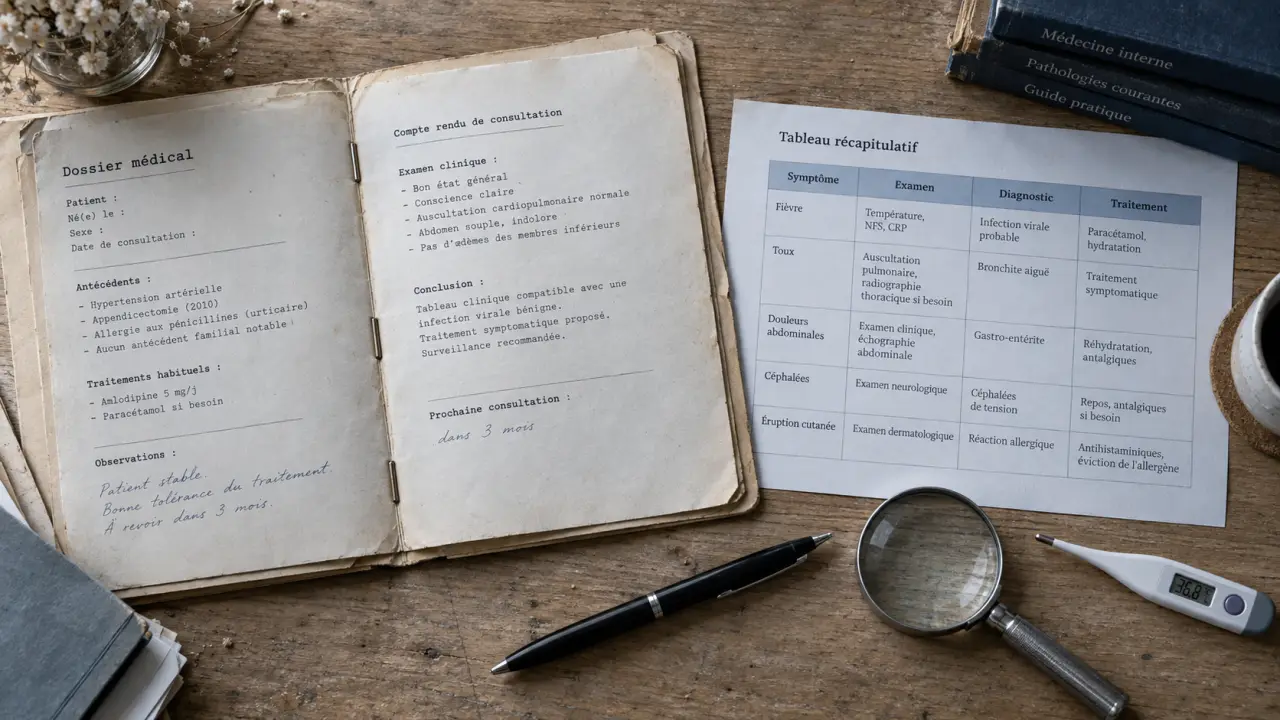 Dossier médical
Patient :
Né(e) le :
Sexe :
Date de consultation :
Antécédents :
- Hypertension artérielle
- Appendicectomie (2010)
- Allergie aux pénicillines (urticaire)
- Aucun antécédent familial notable
Traitements habituels :
- Amlodipine 5 mg/j
- Paracétamol si besoin
Observations :
Patient stable.
Bonne tolérance du traitement.
À revoir dans 3 mois.
Compte rendu de consultation
Examen clinique :
- Bon état général
- Conscience claire
- Auscultation cardiopulmonaire normale
- Abdomen souple, indolore
- Pas d'œdèmes des membres inférieurs
Conclusion :
Tableau clinique compatible avec une
infection virale bénigne.
Traitement symptomatique proposé.
Surveillance recommandée.
Prochaine consultation :
dans 3 mois
Tableau récapitulatif
Symptôme Examen Diagnostic Traitement
Fièvre
Température,
NFS, CRP
Infection virale
probable
Paracétamol,
hydratation
Toux
Auscultation
pulmonaire,
radiographie
thoracique si besoin
Bronchite aiguë
Traitement
symptomatique
Douleurs
abdominales
Examen clinique,
échographie
abdominale
Gastro-entérite
Réhydratation,
antalgiques
Céphalées
Examen neurologique
Céphalées
de tension
Repos, antalgiques
si besoin
Éruption cutanée
Examen dermatologique
Réaction allergique
Antihistaminiques,
éviction de l'allergène
Médecine interne
Pathologies courantes
Guide pratique
36.8°C